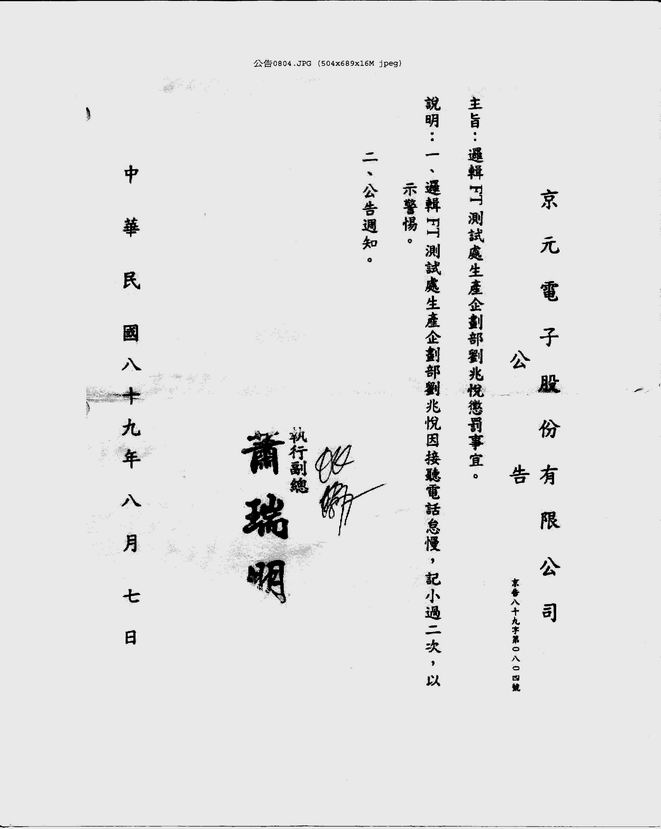 公告0804.JPG (504x689x16M jpeg)
京元電子股份有限公司
公告
京告八十九字第０八０四號
主旨：邏輯FT測試處生產企劃部劉兆悅懲罰事宜。
說明：一、邏輯FT測試處生產企劃部劉兆悅因接聽電話怠慢，記小過二次，以
示警惕。
二、公告週知。
執行副總
蕭瑞明
中華民國八十九年八月七日